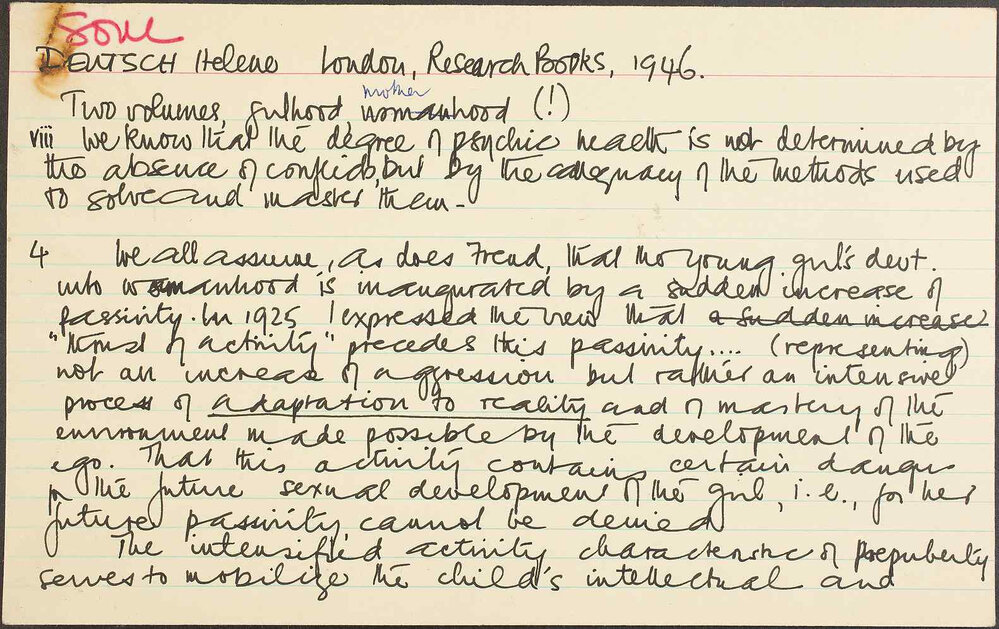 Soul
DEUTSCH Helene London, Research Books, 1946.
mother
Two volumes, girlhood womanhood (!)
viii We know that the degree of psychic health is not determined by
the absence of conflicts, but by the adequacy of the methods used
to solve and master them –
4 We all assume, as does Freud, that the young girl's devt.
into womanhood is inaugurated by a sudden increase of
passivity. In 1925 I expressed the view that a sudden increase
"thrust of activity" precedes this passivity.... (representing)
not an increase of aggression but rather an intensive
process of adaptation to reality and of mastery of the
environment made possible by the development of the
ego. That this activity contains certain dangers
for the future sexual development of the girl, i.e., for her
future passivity cannot be denied
The intensified activity characteristic of prepuberty
serves to mobilize the child's intellectual and